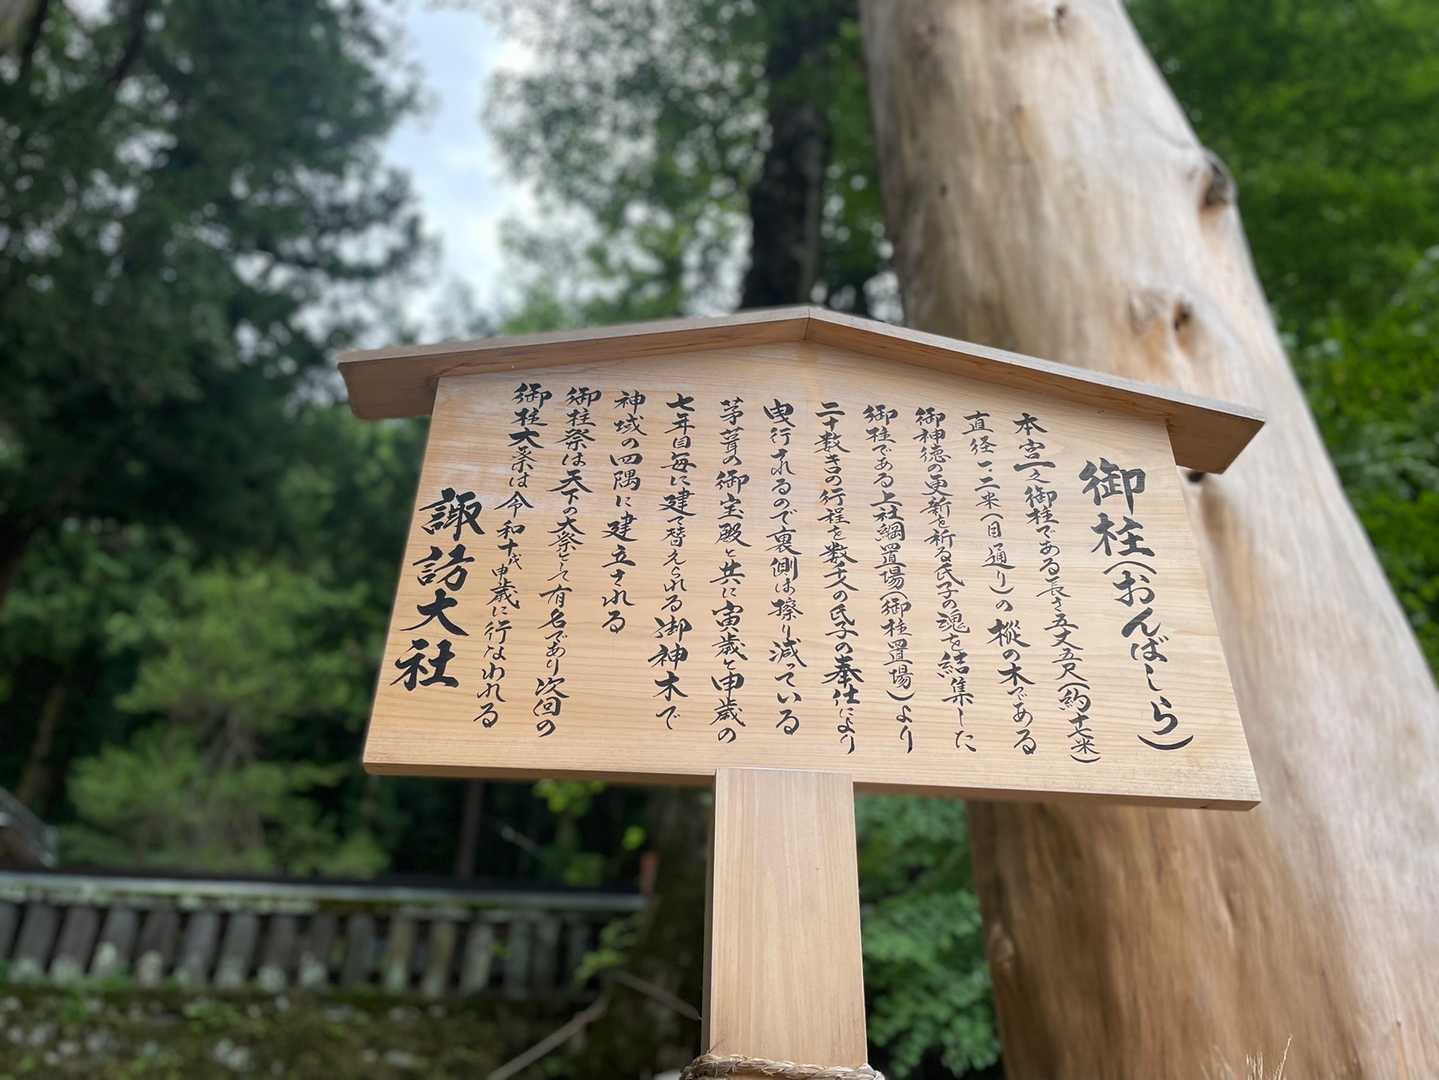 御柱(おんばしら)
本宮一之御柱である長さ五丈五尺(約十七米)
直径一二米(目通り)の樅の木である
御神徳の更新を祈る氏子の魂を結集した
御柱である上社綱置場(御柱置場)より
二十数キロの行程を数千人の氏子の奉仕により
曳行されるので裏側は擦り減っている
茅葺の御宝殿と共に寅歳と申歳の
七年目毎に建て替えられる御神木で
神域の四隅に建立される
御柱祭は天下の大祭として有名であり次回の
御柱大祭は令和十年申歳に行なわれる
諏訪大社